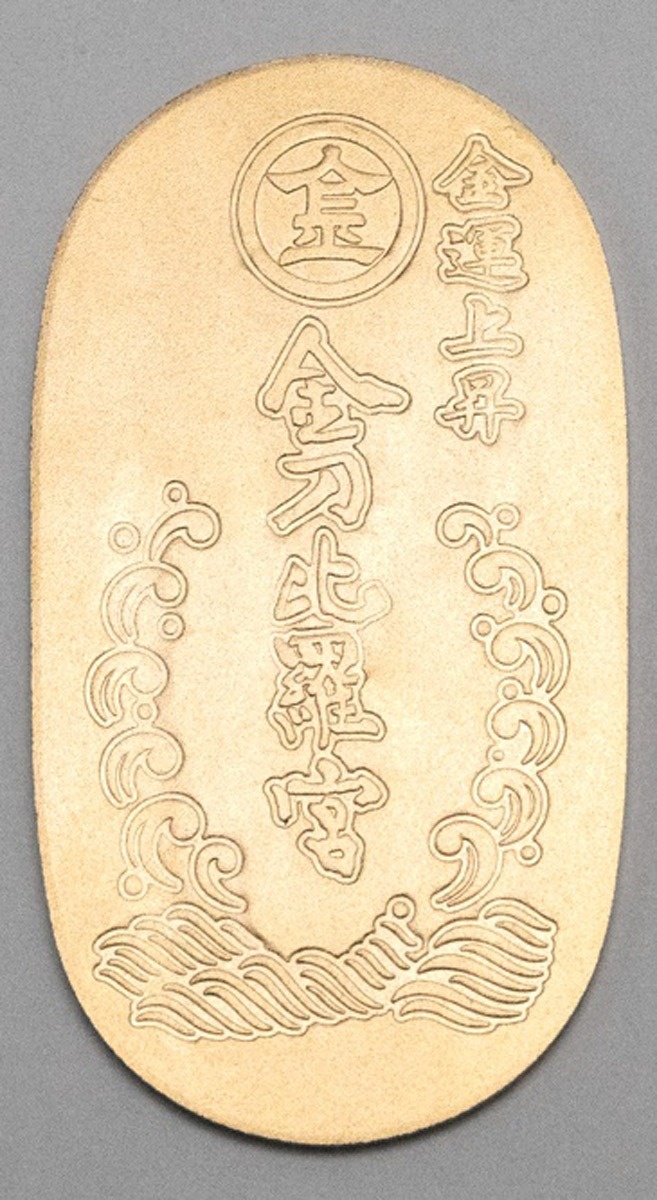 金運上昇
金
金刀比羅宮